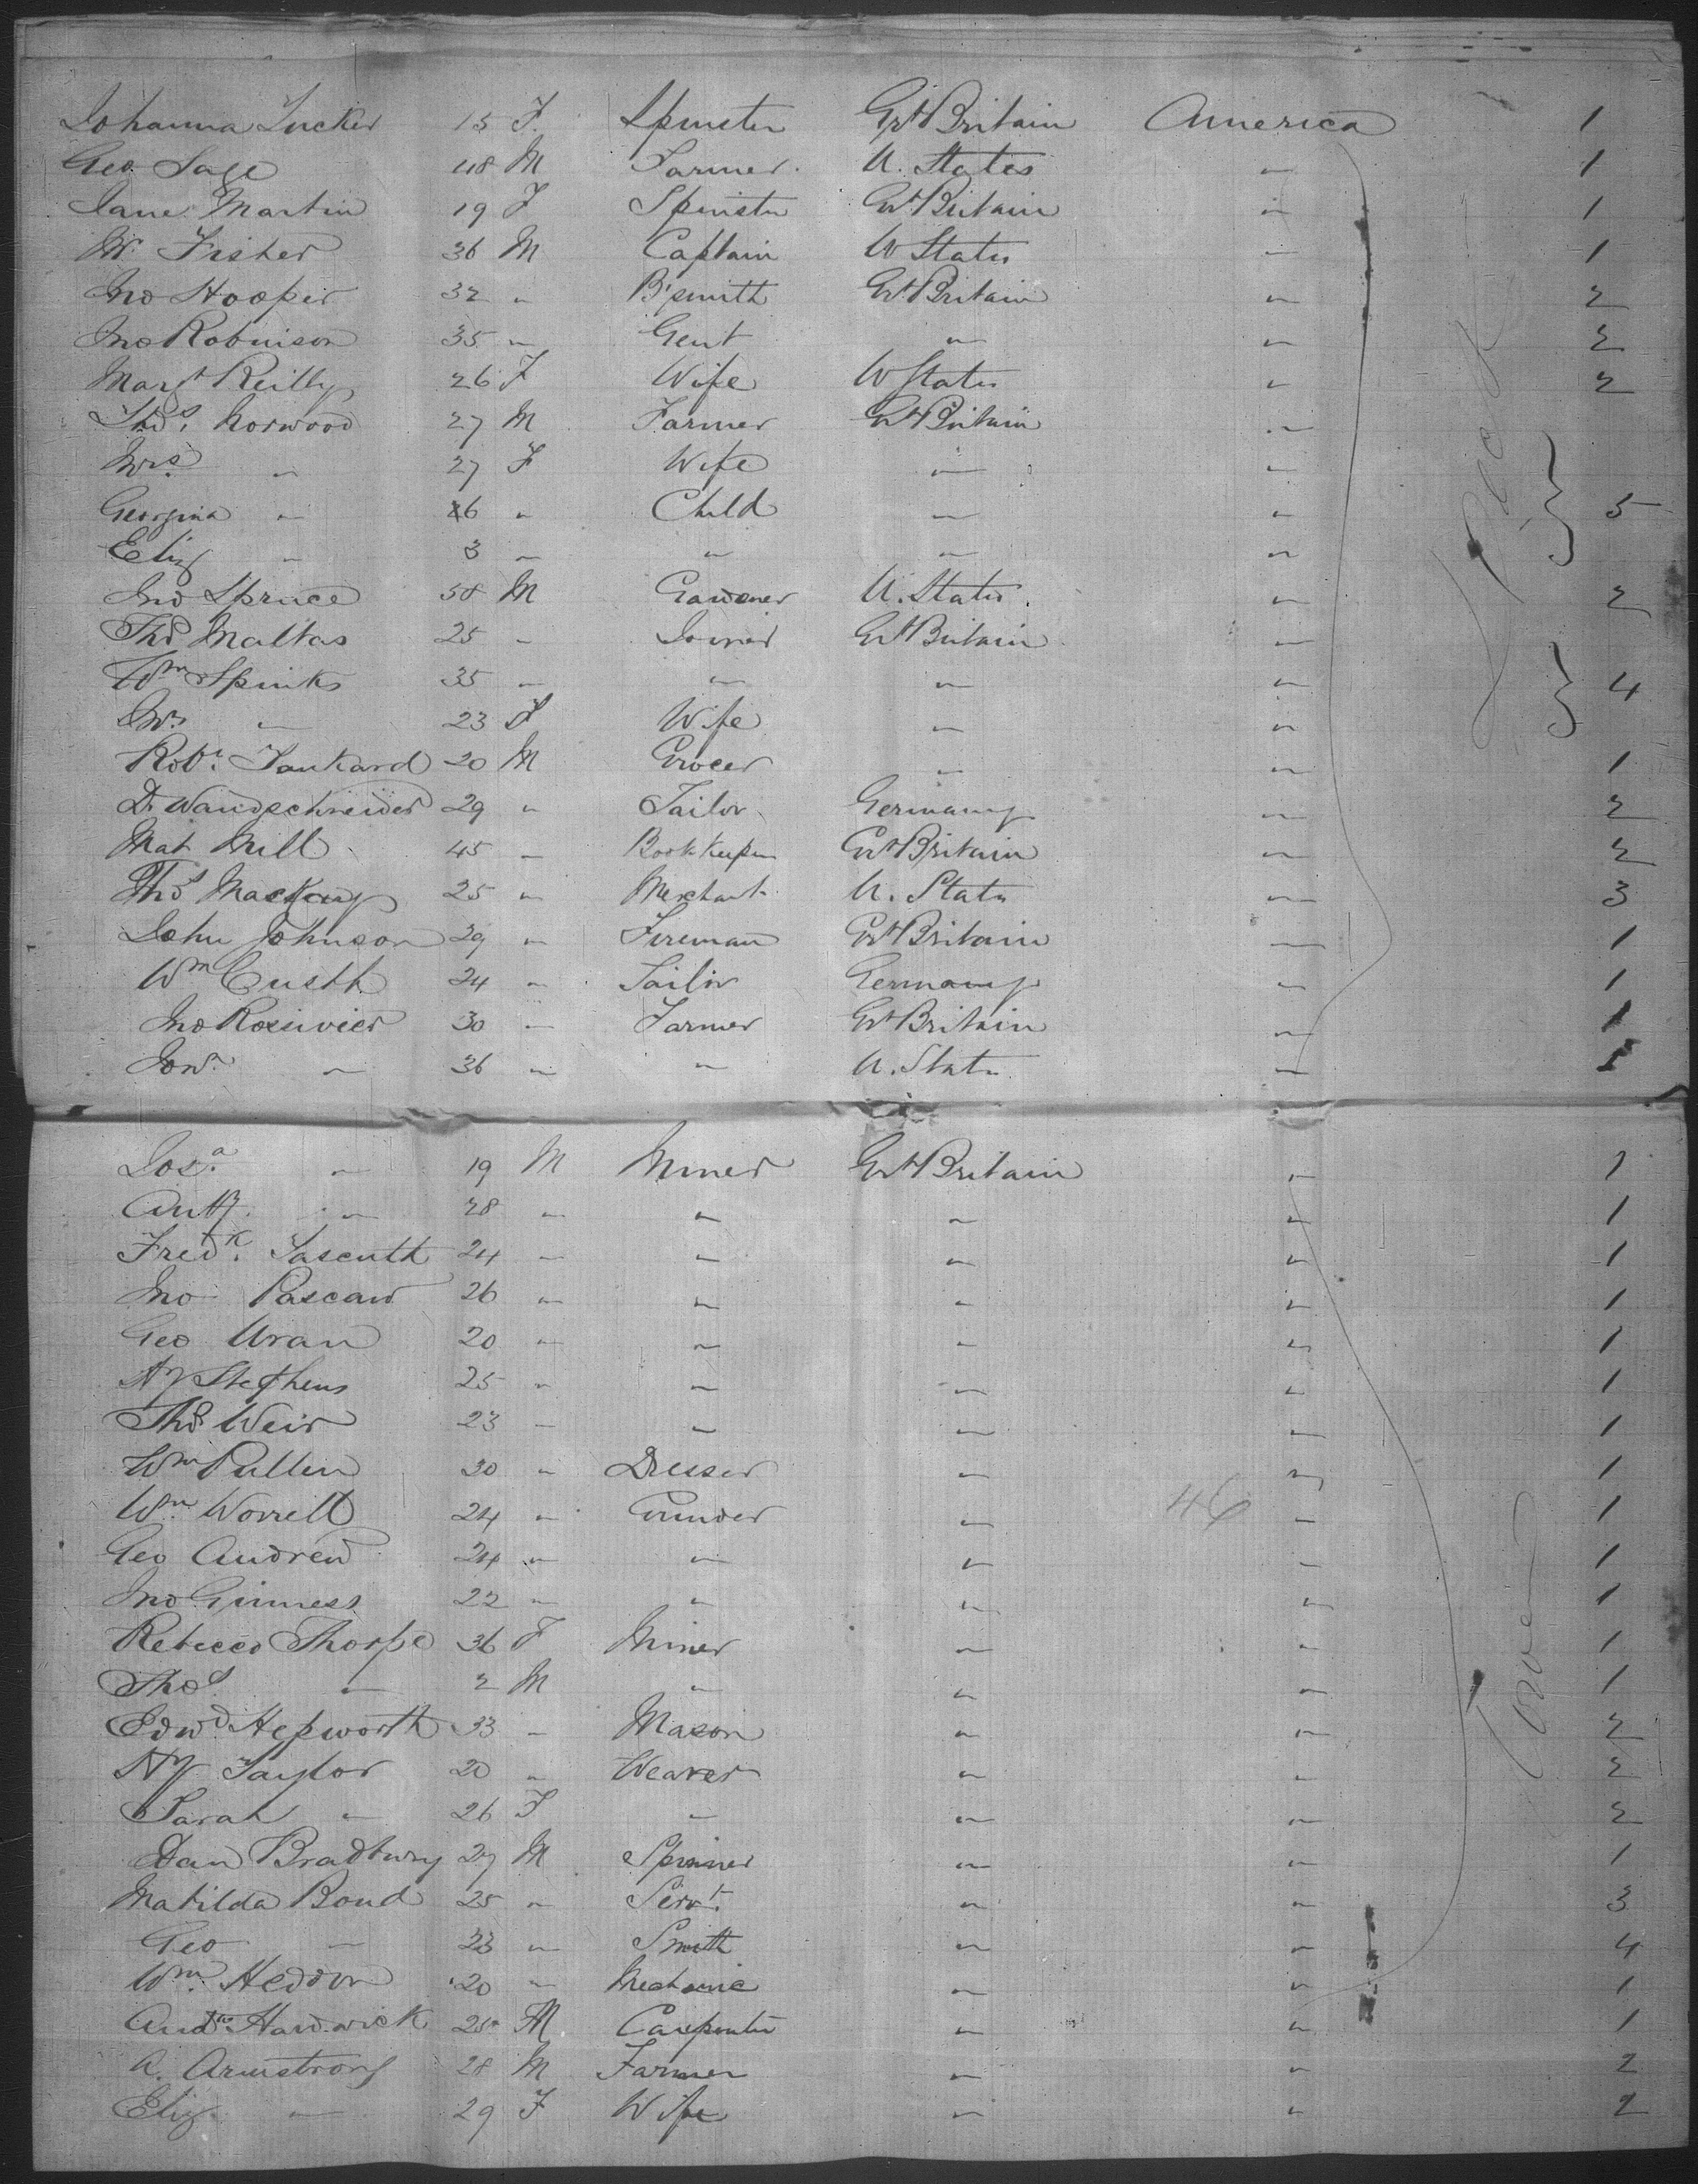 Johanna Tucker 15 F. Spinster Grt Britain America 1
Geo. Sage 48 M Farmer. U. States " 1
Jane Martin 19 F Spinster Grt Britain " 1
W. Fisher 36 M Captain U States " 1
Jno Hooper 32 " B'smith Grt Britain " 2
Jno Robinson 35 " Gent " " 2
Margt Reilly 26 F Wife U States " 2
Thos. Norwood 27 M Farmer Grt Britain "
Mrs. " 27 F Wife " "
Georgina " 6 " Child " " 5
Eliz " 3 " " " "
Jno Spruce 58 M Gardener U. States. " 2
Thos Maltas 25 " Joiner Grt Britain "
Wm Spinks 35 " " " " 4
Mrs " 23 F Wife " "
Robt. Tankard 20 M Grocer " " 1
D. Wandschneider 29 " Tailor Germany " 2
Mat Mill 45 " Bookkeeper Grt Britain " 2
Thos Mackay 25 " Merchant U. States " 3
John Johnson 29 " Fireman Grt Britain " 1
Wm 24 " Tailor Germany " 1
Jno 30 " Farmer Grt Britain " 1
" 36 " " U. States " 1
Deck
Josa. " 19 M Miner Grt Britain " 1
" 28 " " " " 1
Fredk. 24 " " " " 1
Jno 26 " " " " 1
Geo Uran 20 " " " " 1
Hy Stephens 25 " " " " 1
Thos Weir 23 " " " " 1
Wm Pullen 30 " Dresser " " 1
Wm Worrell 24 " Grinder " 46 " 1
Geo Andrew 24 " " " " 1
Jno Guiness 22 " " " " 1
Rebecca Thorpe 36 F Miner " " 1
Thos " 2 M " " " 1
Edwd Hepworth 33 " Mason " " 2
Hy Taylor 20 " Weaver " " 2
Sarah " 26 F " " " 2
Dan Bradbury 27 M Spinner " " 1
Matilda Bond 25 " Servt. " " 3
Geo " 23 " Smith " " 4
Wm. Heddon 20 " Mechanic " " 1
Hardwick 25 M Carpenter " " 1
A. Armstrong 28 M Farmer " " 2
Eliz. " 29 F Wife " " 2